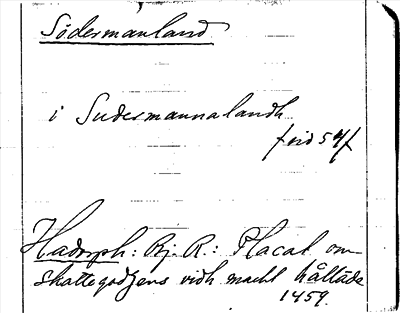 Södermanland
i Sudermannalandh
Hadorph: Bj. R.: Placat om
skattegodzens vidh macht hållāde
1459.